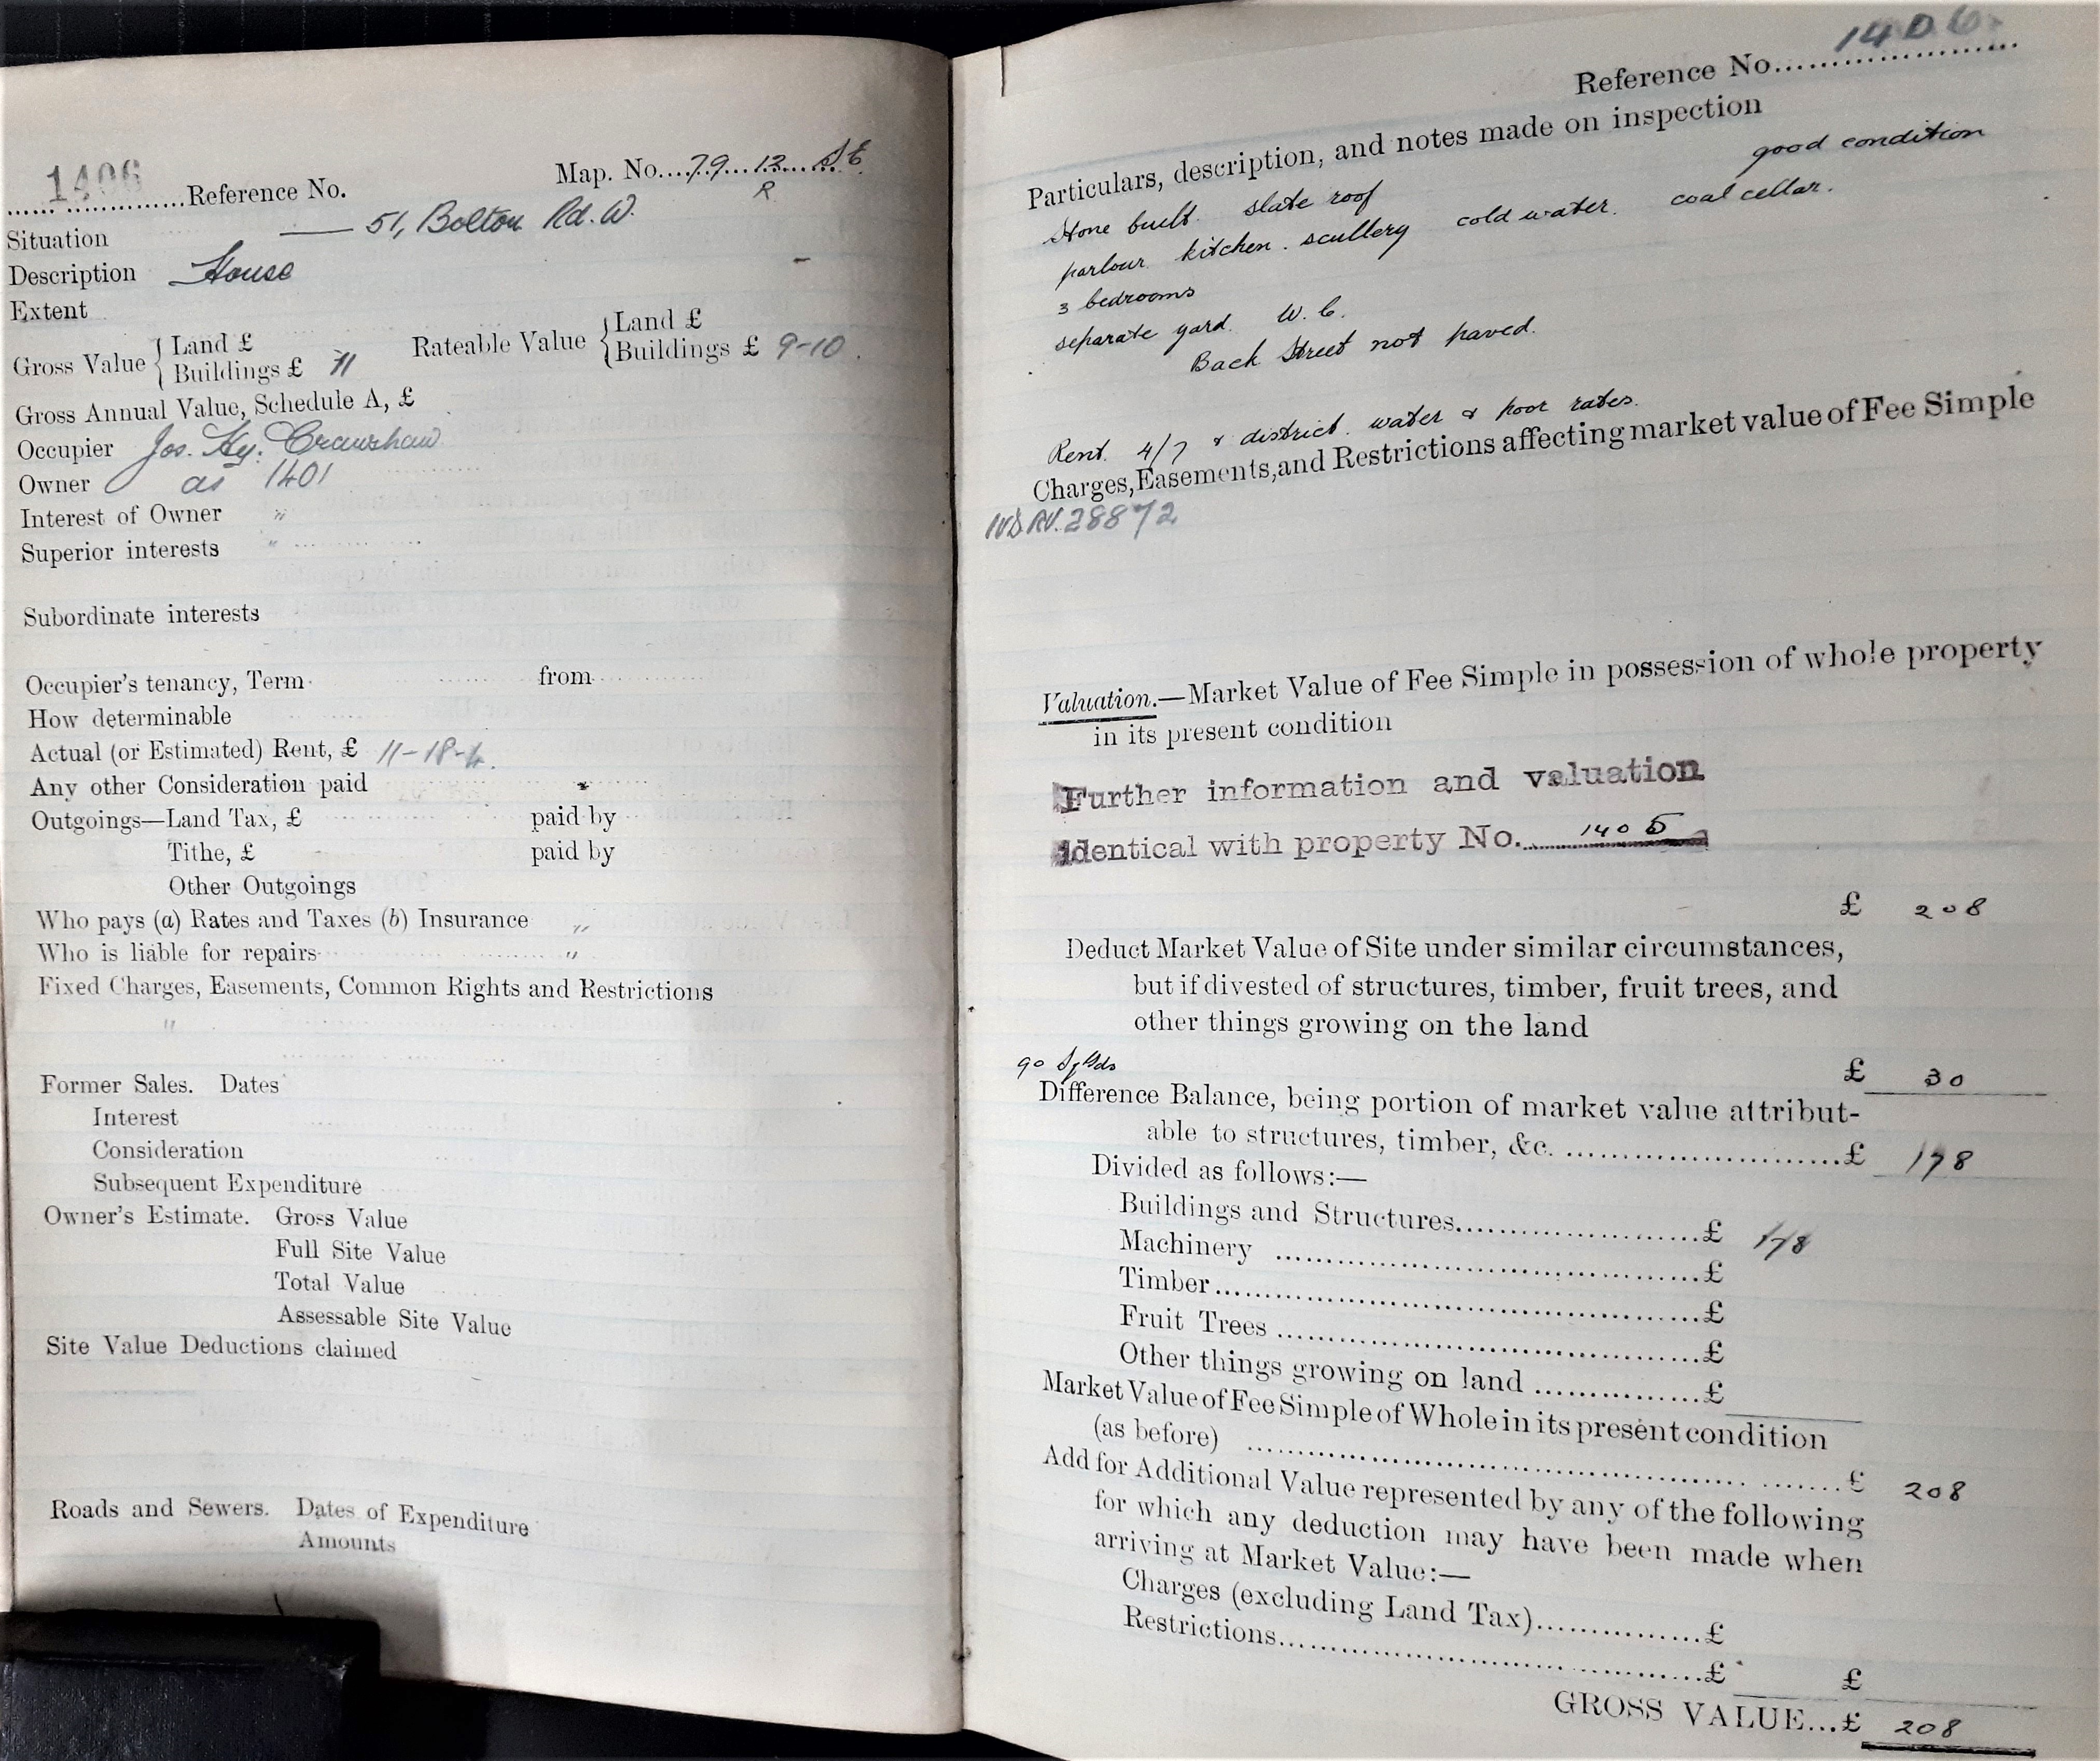 1406 Reference No. Map. No. 79 12 S E
R
Situation 51, Bolton Rd. W.
Description House
Extent
Gross Value { Land £ Rateable Value { Land £
Buildings £ 11 Buildings £ 9-10.
Gross Annual Value, Schedule A, £
Occupier Jos. Hy. Crawshaw
Owner as 1401
Interest of Owner "
Superior interests "
Subordinate interests
Occupier's tenancy, Term from
How determinable
Actual (or Estimated) Rent, £ 11-18-4.
Any other Consideration paid
Outgoings—Land Tax, £ paid by
Tithe, £ paid by
Other Outgoings
Who pays (a) Rates and Taxes (b) Insurance "
Who is liable for repairs "
Fixed Charges, Easements, Common Rights and Restrictions
"
Former Sales. Dates
Interest
Consideration
Subsequent Expenditure
Owner's Estimate. Gross Value
Full Site Value
Total Value
Assessable Site Value
Site Value Deductions claimed
Roads and Sewers. Dates of Expenditure
Amounts
Reference No. 1406.
Particulars, description, and notes made on inspection
good condition
Stone built. slate roof
parlour. kitchen. scullery cold water. coal cellar.
3 bedrooms
separate yard. W.C.
Back Street not paved.
Rent. 4/7 & district. water & poor rates.
Charges, Easements, and Restrictions affecting market value of Fee Simple
28872
Valuation.—Market Value of Fee Simple in possession of whole property
in its present condition
Further information and valuation
identical with property No. 1405
£ 208
Deduct Market Value of Site under similar circumstances,
but if divested of structures, timber, fruit trees, and
other things growing on the land
90 Sq Yds £ 30
Difference Balance, being portion of market value attribut-
able to structures, timber, &c. £ 178
Divided as follows:—
Buildings and Structures £ 178
Machinery £
Timber £
Fruit Trees £
Other things growing on land £
Market Value of Fee Simple of Whole in its present condition
(as before) £ 208
Add for Additional Value represented by any of the following
for which any deduction may have been made when
arriving at Market Value:—
Charges (excluding Land Tax) £
Restrictions £ £
GROSS VALUE...£ 208